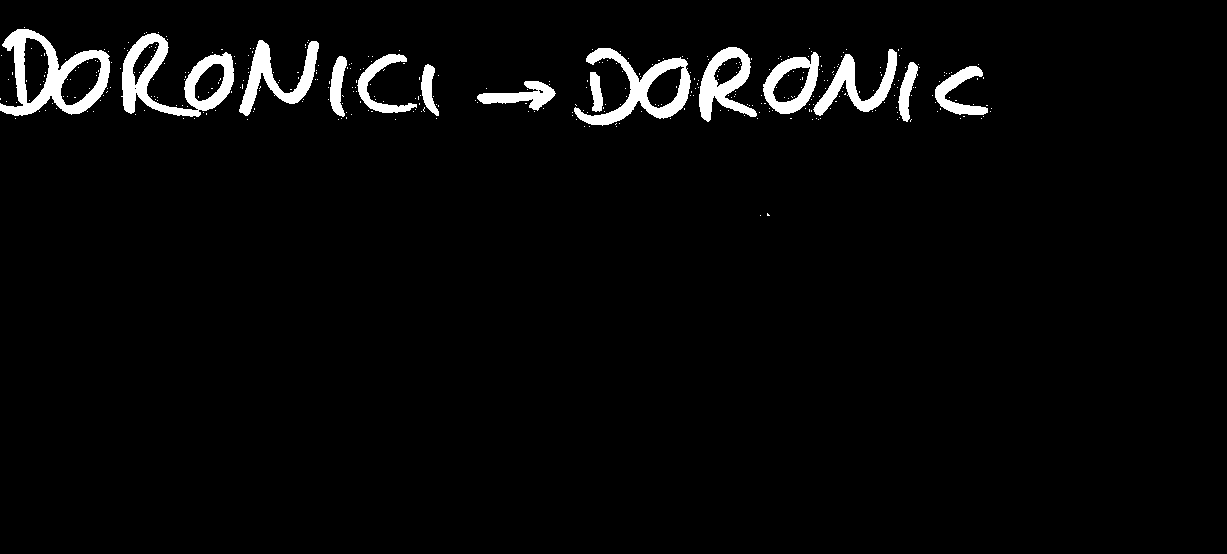 DORONICI → DORONIC